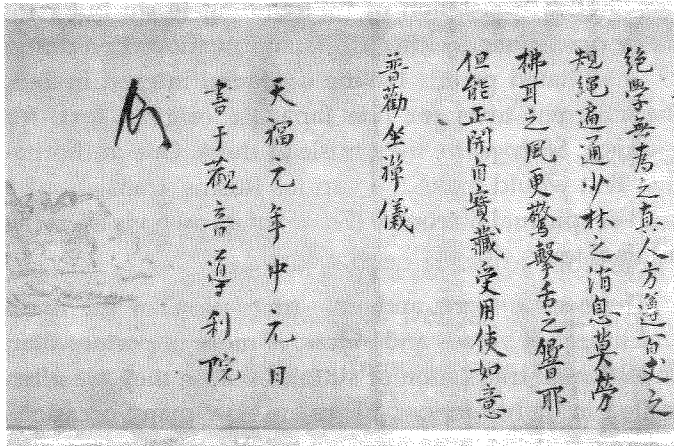 絶學無為之真人方邁百丈之
規繩遍通少林之消息莫勞
拂耳之風更驚擊舌之響耶
但能正開自寶藏受用使如意
普勸坐禪儀
天福元年中元日
書于觀音導利院